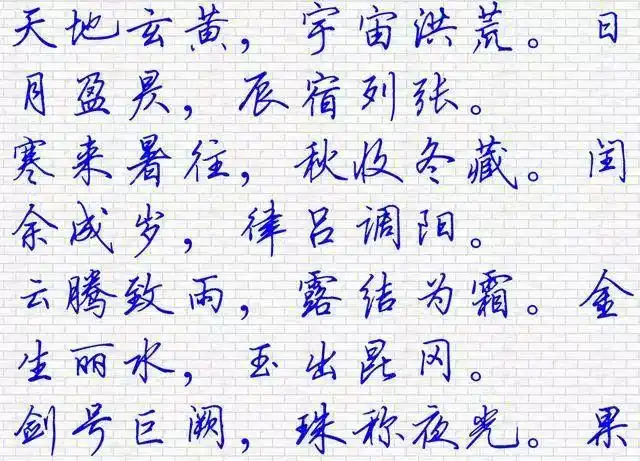 天地玄黄，宇宙洪荒。日
月盈昃，辰宿列张。
寒来暑往，秋收冬藏。闰
余成岁，律吕调阳。
云腾致雨，露结为霜。金
生丽水，玉出昆冈。
剑号巨阙，珠称夜光。果